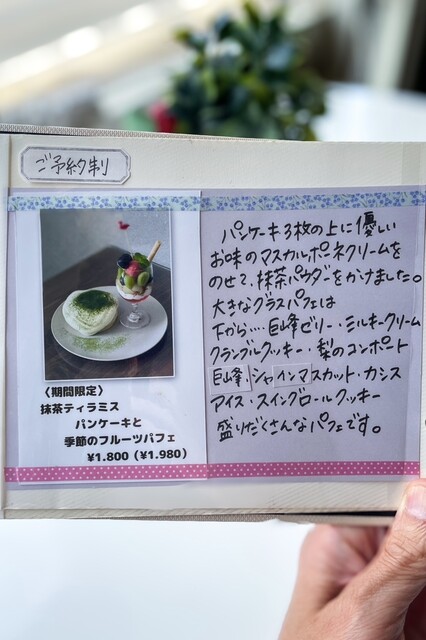 ご予約制
〈期間限定〉
抹茶ティラミス
パンケーキと
季節のフルーツパフェ
¥1.800（¥1.980）
パンケーキ3枚の上に優しい
お味のマスカルポーネクリームを
のせて、抹茶パウダーをかけました。
大きなグラスパフェは
下から…巨峰ゼリー・ミルキークリーム
クランブルクッキー・梨のコンポート
巨峰・シャインマスカット・カシス
アイス・スイングロールクッキー
盛りだくさんなパフェです。